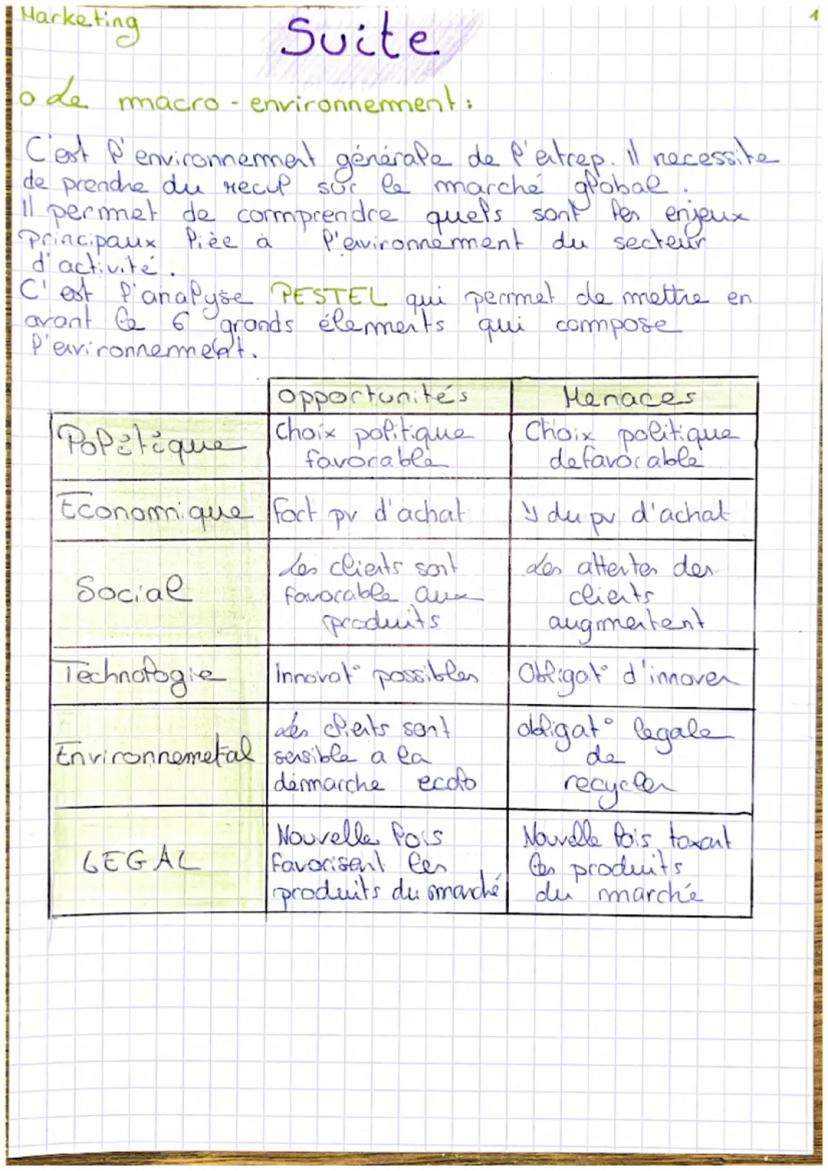 Marketing
1
Suite
o Le macro-environnement :
C'est l'environnement générale de l'entrep. Il necessite
de prendre du recul sur le marché global.
Il permet de comprendre quels sont les enjeux
principaux liée à l'environnement du secteur
d'activité.
C'est l'analyse PESTEL qui permet de mettre en
avant le 6 grands élements qui compose
l'environnement.
opportunités Menaces
Politique
Choix politique
favorable
Choix politique
defavorable
Economique fort pv d'achat ↘ du pv d'achat
Social
Les clients sont
favorable aux
produits
Les attentes des
clients
augmentent
Technologie Innovat° possibles Obligat° d'innover
Environnemetal
Les clients sont
sensible a la
démarche ecolo
obligat° legale
de
recycler
LEGAL
Nouvelle lois
favorisent les
produits du marché
Nouvelle lois taxant
les produits
du marché